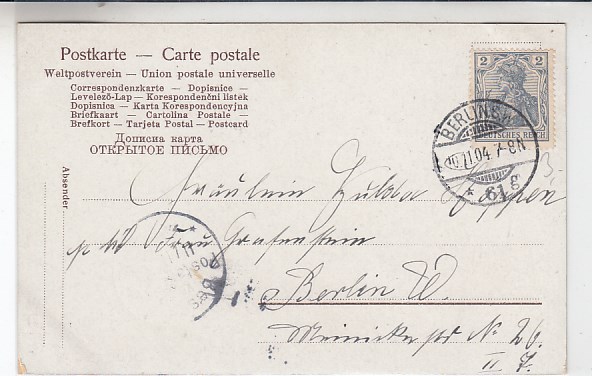 Postkarte — Carte postale
Weltpostverein — Union postale universelle
Correspondenzkarte — Dopisnice —
Levelező-Lap — Korespondenční listek
Dopisnica — Karta Korespondencyjna
Briefkaart — Cartolina Postale —
Brefkort — Tarjeta Postal — Postcard
Дописна карта
ОТКРЫТОЕ ПИСЬМО
Absender
2 2
DEUTSCHES REICH
BERLIN SW
10.11.04. 7-8N
* 61 g
Fräulein Hulda
p ad Frau Grafenstein
Berlin W.
Meinicke № 26.
II. 7.
Post